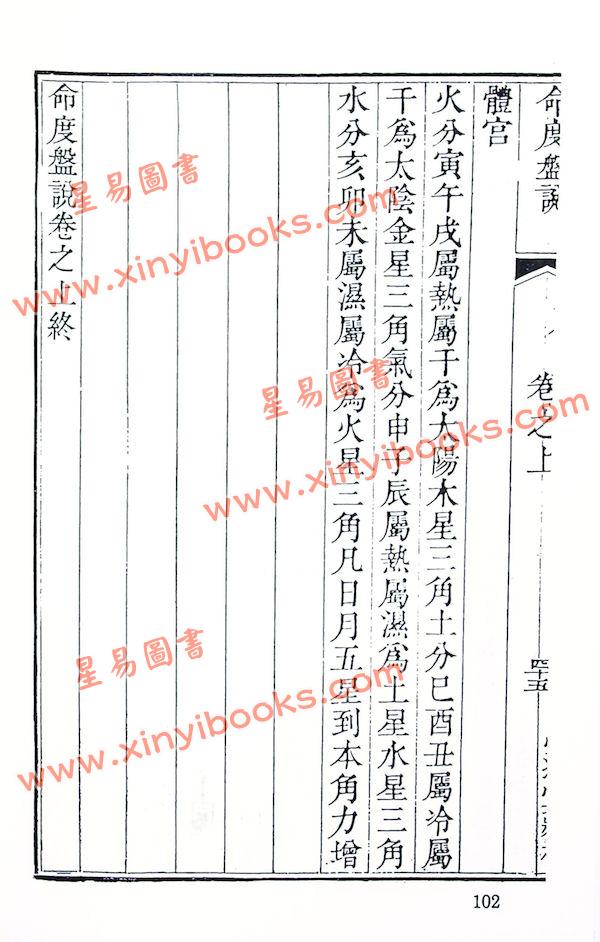 命度盤說
卷之上
四十五
體宮
火分寅午戌屬熱屬干爲太陽木星三角土分巳酉丑屬冷屬
干爲太陰金星三角氣分申子辰屬熱屬濕爲土星水星三角
水分亥卯未屬濕屬冷爲火星三角凡日月五星到本角力增
命度盤說卷之上終
102
星易圖書
www.xinyibooks.com
星易圖書
www.xinyibooks.com
星易圖書
www.xinyibooks.com